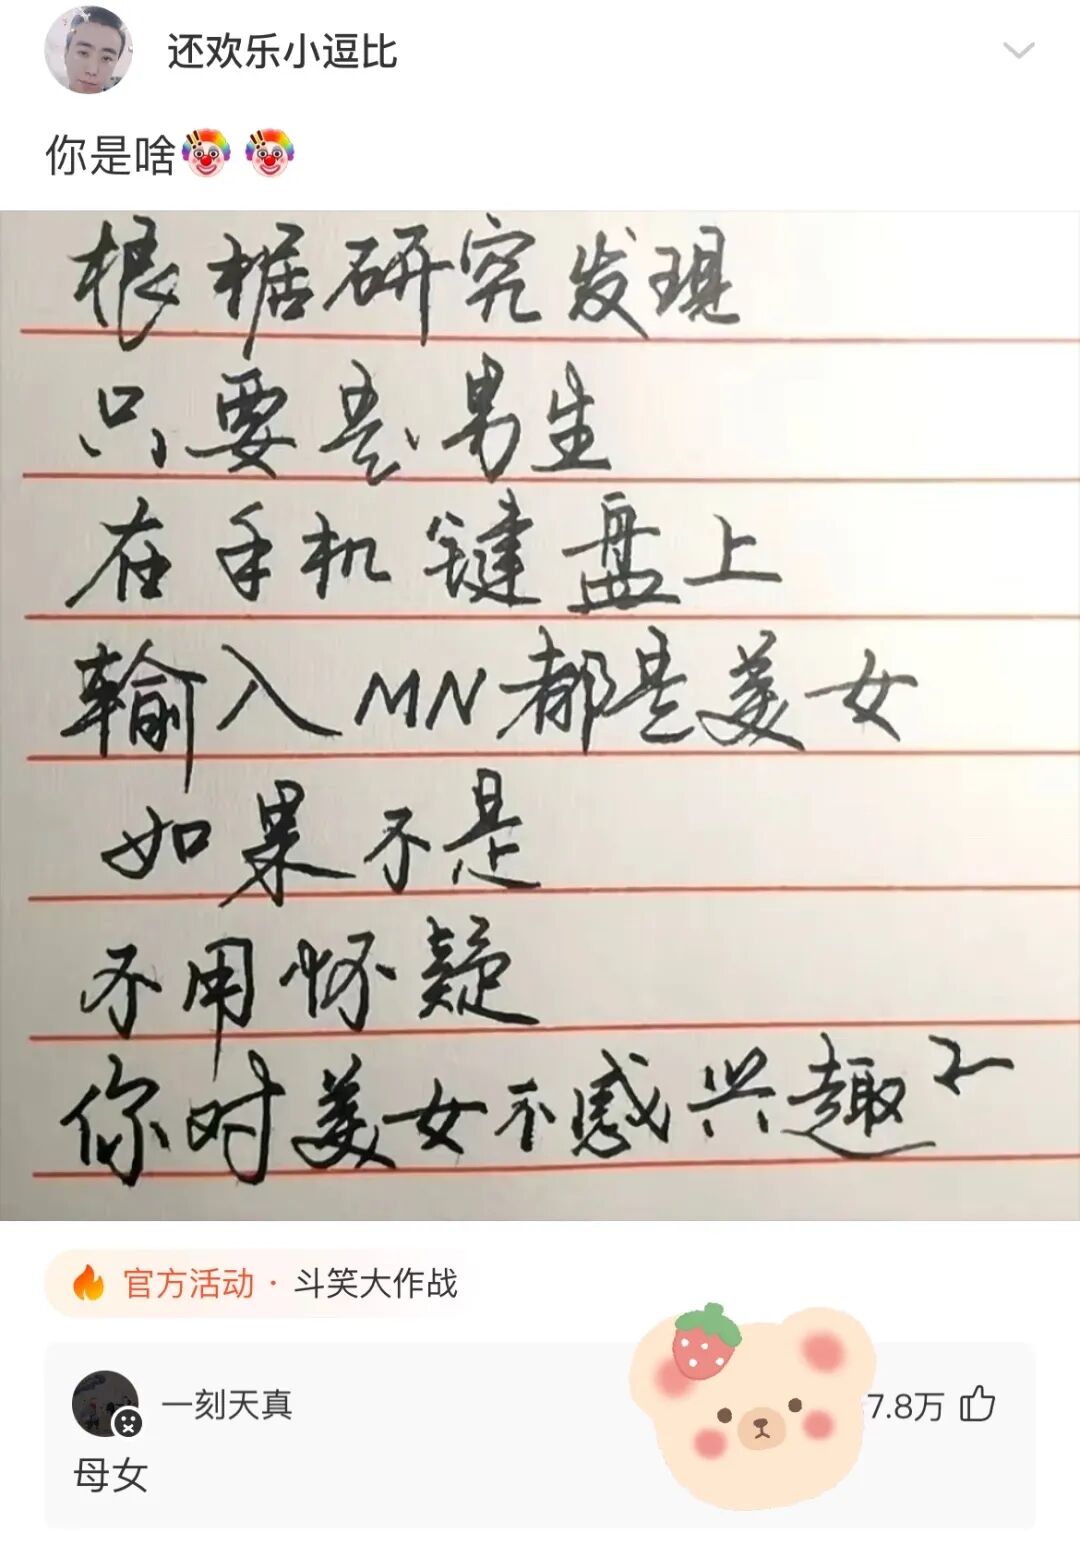 还欢乐小逗比
你是啥🤡🤡
根据研究发现
只要是男生
在手机键盘上
输入MN都是美女
如果不是
不用怀疑
你对美女不感兴趣了
官方活动 · 斗笑大作战
一刻天真
7.8万
母女